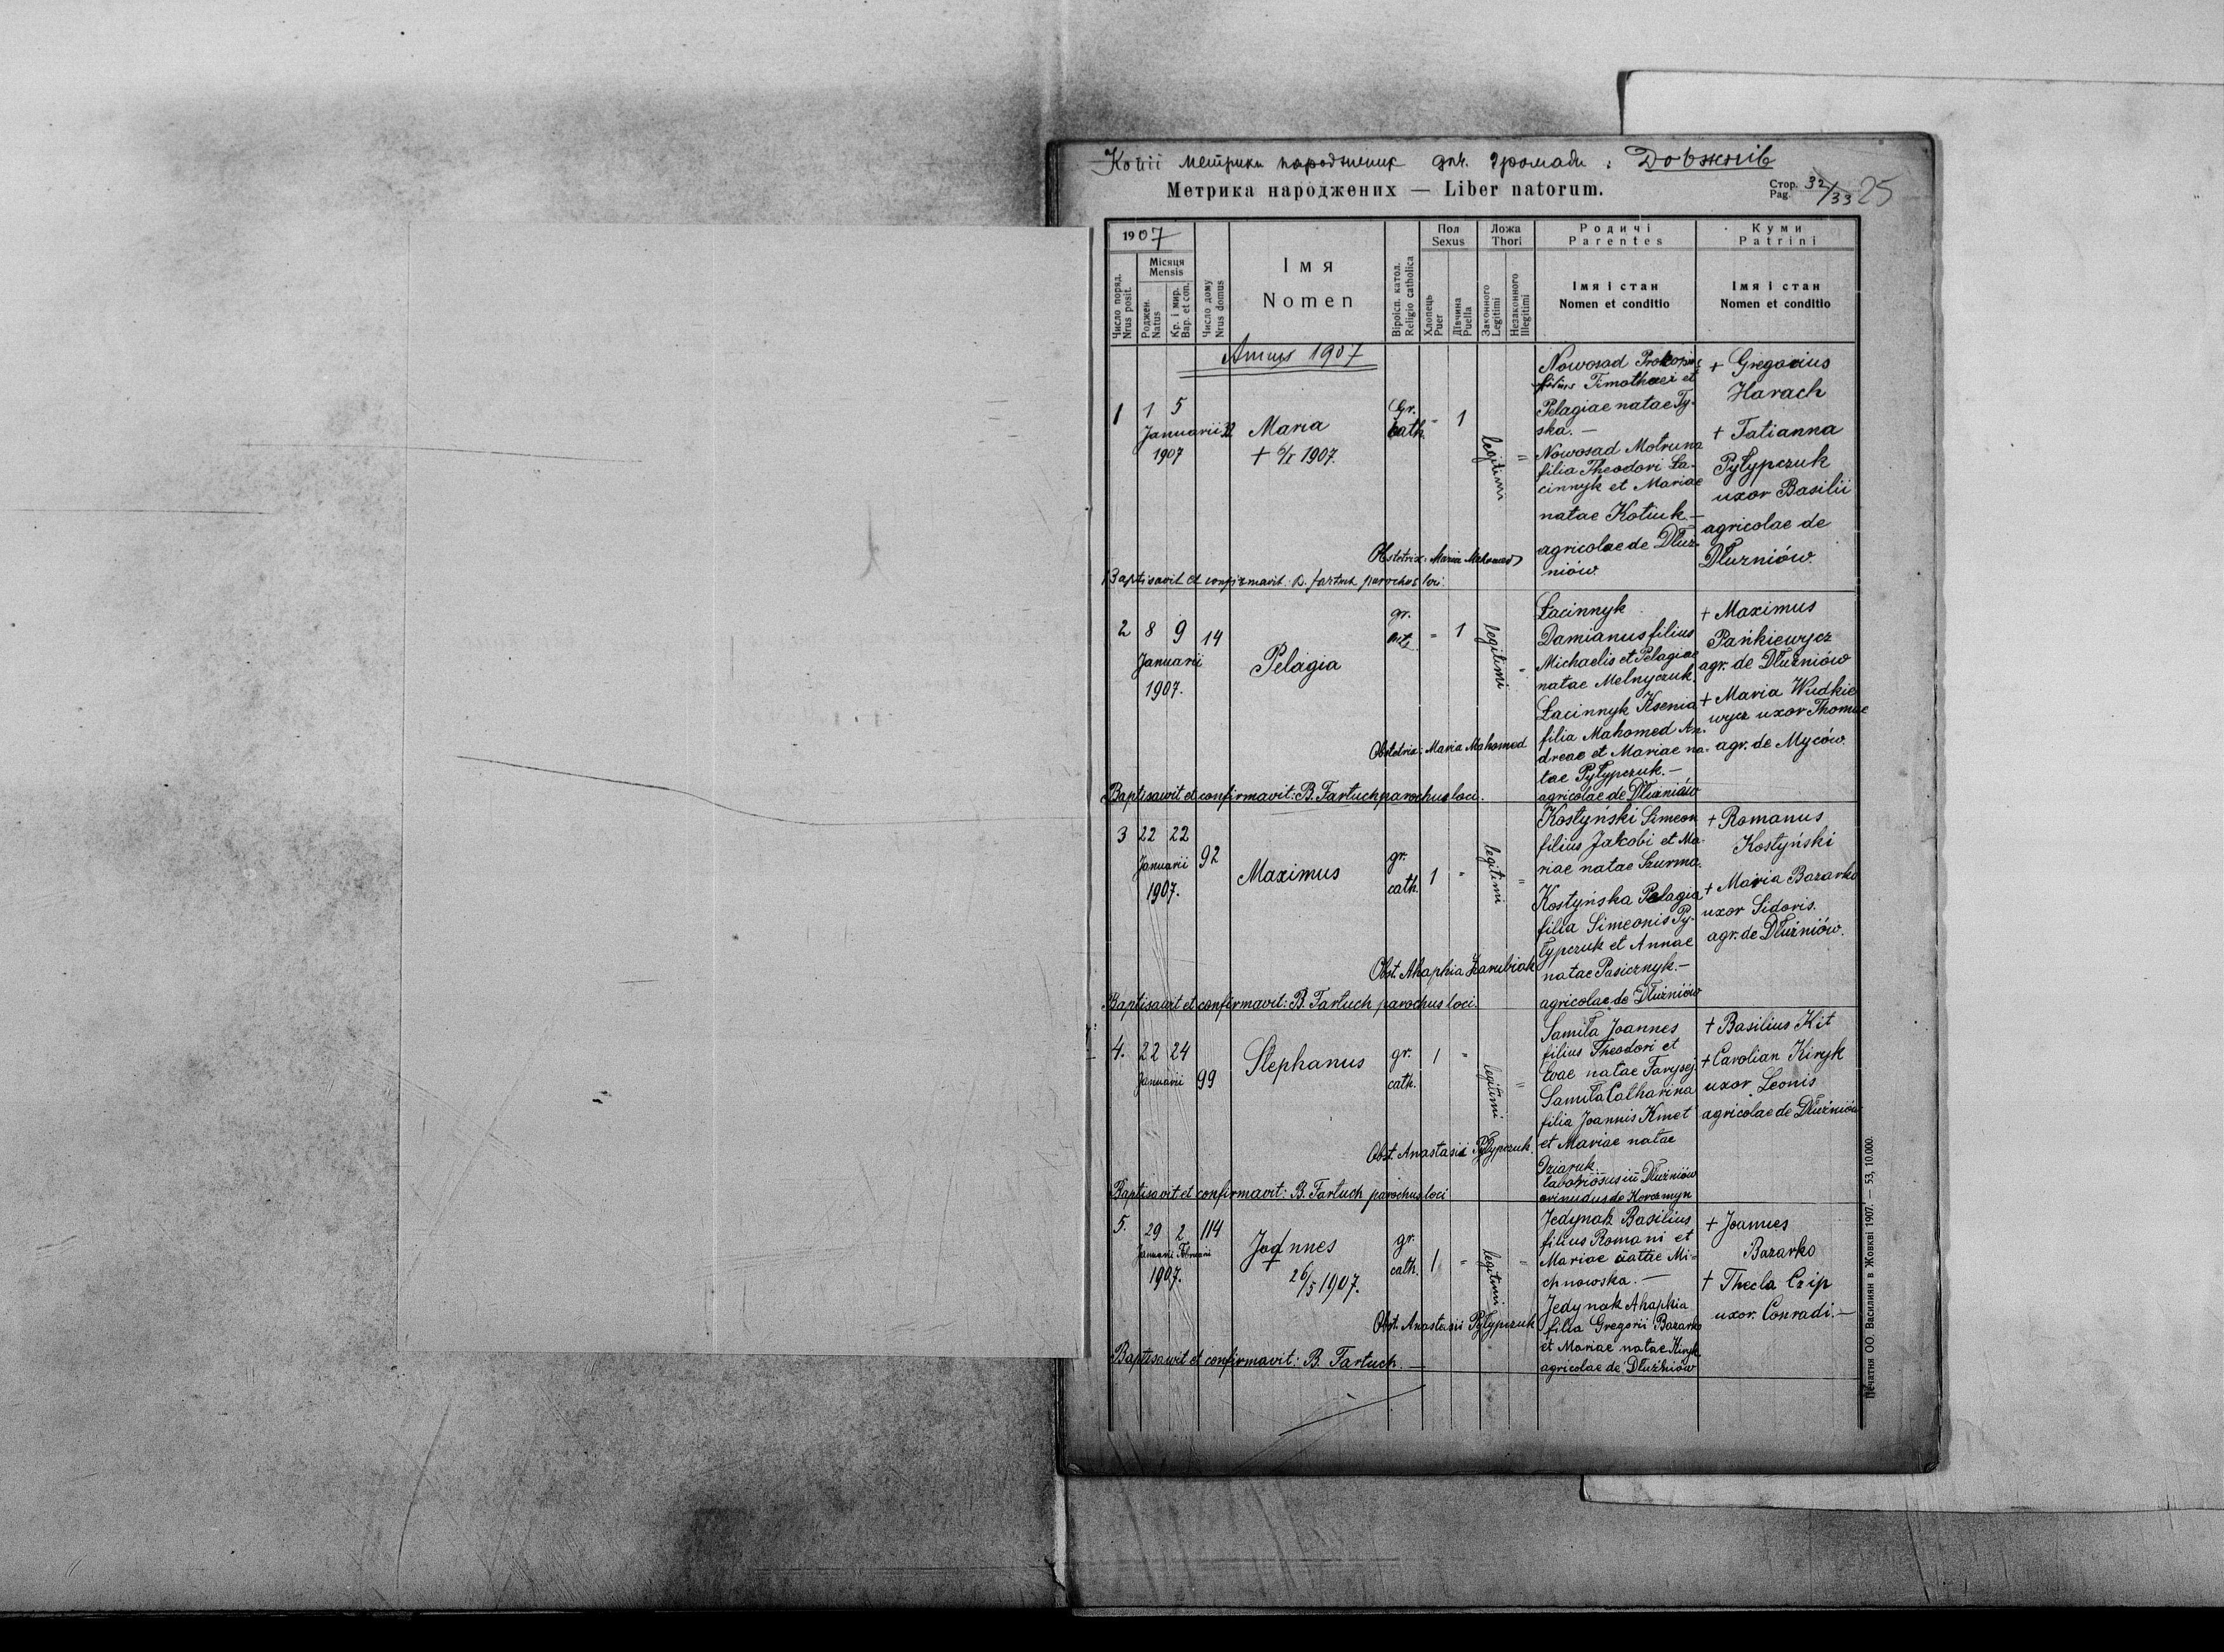 Копії метрики народжених для громади : Довжнів
Метрика народжених — Liber natorum.
Стор. Pag. 32/33 25
1907
Число поряд. Nrus posit.
Місяця Mensis
Роджен. Natus
Кр. і мир. Bap. et con.
Число дому Nrus domus
Імя
Nomen
Віроісп. катол. Religio catholica
Пол Sexus
Хлопець Puer
Дівчина Puella
Ложа Thori
Законного Legitimi
Незаконного Illegitimi
Родичі
Parentes
Імя і стан
Nomen et conditio
Куми
Patrini
Імя і стан
Nomen et conditio
Annus 1907
1 1 5
Januarii 32
1907
Maria
+ 6/I 1907.
Gr.
cath. " 1
legitimi "
Nowosad Prokopius
filius Timothaei et
Pelagiae natae Ty-
ska. —
Nowosad Motruna
filia Theodori Ła-
cinnyk et Mariae
natae Kotiuk —
agricolae de Dłuż-
niów.
+ Gregorius
Harach
+ Tatianna
Pyłypczuk
uxor Basilii
agricolae de
Dłużniów.
Obstetrix: Maria Mahomed
Baptisavit et confirmavit: B. Fartuch parochus loci.
2 8 9 14
Januarii
1907.
Pelagia
gr. " 1
legitimi "
Łacinnyk
Damianus filius
Michaelis et Pelagiae
natae Melnyczuk.
Łacinnyk Ksenia
filia Mahomed An-
dreae et Mariae na-
tae Pyłypczuk. —
agricolae de Dłużniów
+ Maximus
Pańkiewycz
agr. de Dłużniów
+ Maria Wudkie
wycz uxor Thomae
agr. de Myców.
Obstetrix: Maria Mahomed
Baptisawit et confirmavit: B. Fartuch parochus loci.
3 22 22
Januarii 92
1907.
Maximus
gr.
cath. 1 "
legitimi "
Kostyński Simeon
filius Jakobi et Ma-
riae natae Szurma.
Kostyńska Pelagia
filia Simeonis Py-
łypczuk et Annae
natae Pasicznyk. —
agricolae de Dłużniów
+ Romanus
Kostyński
+ Maria Bazarko
uxor Sidoris.
agr. de Dłużniów.
Obst. Ahaphia Zarubiak
Baptisavit et confirmavit: B. Fartuch parochus loci.
4. 22 24
Januarii 99
Stephanus
gr. 1 "
cath.
legitimi "
Samiła Joannes
filius Theodori et
Evae natae Farysej
Samiła Catharina
filia Joannis Kmet
et Mariae natae
Dziapuk.
laboriosus in Dłużniów
oriundus de Korczmyn
+ Basilius Kit
+ Carolian Kiryk
uxor Leonis
agricolae de Dłużniów
Obst. Anastasia Pyłypczuk.
Baptisavit et confirmavit: B. Fartuch parochus loci
5. 29 2 114
Januarii Februarii
1907.
Joannes
+
26/5 1907.
gr.
cath. 1 "
legitimi "
Jedynak Basilius
filius Romani et
Mariae natae Mi-
chnowska. —
Jedynak Ahaphia
filia Gregorii Bazarko
et Mariae natae Kiryk
agricolae de Dłużniów
+ Joannes
Bazarko
+ Thecla Czip
uxor Conradi. —
Obst. Anastasii Pyłypczuk
Baptisawit et confirmavit: B. Fartuch. —
Печатня ОО. Василиян в Жовкві 1907. — 53, 10.000.